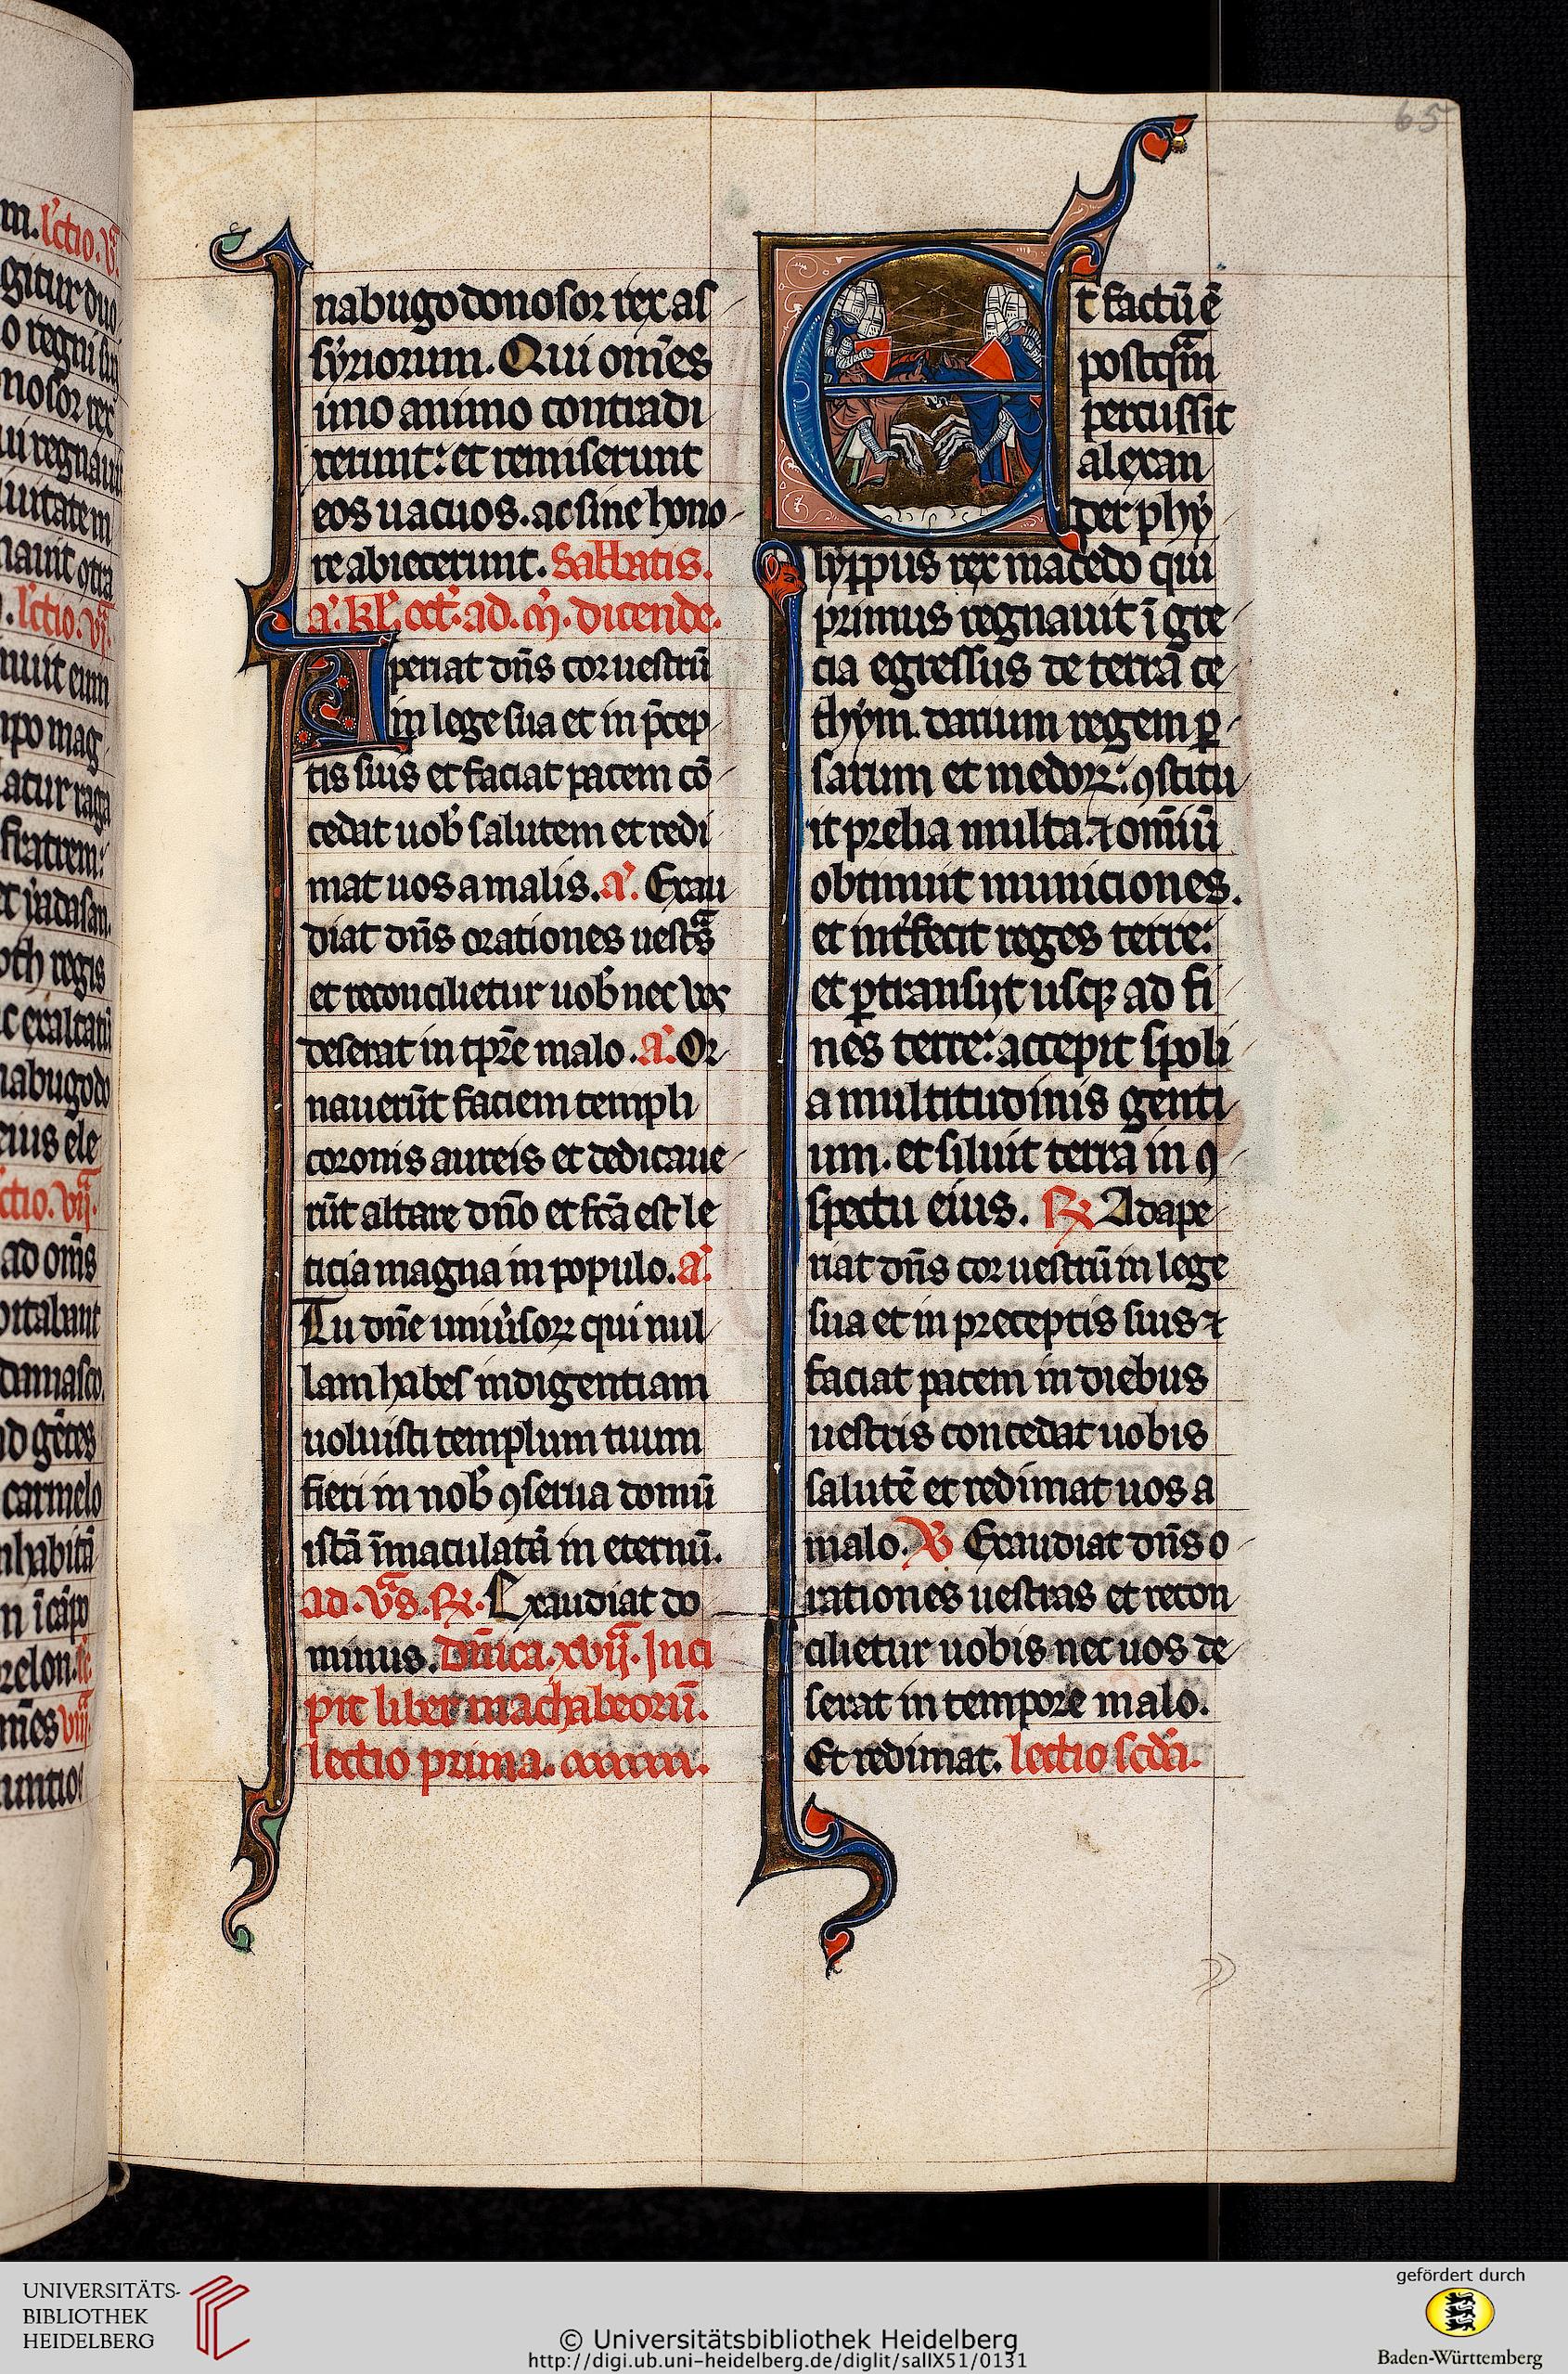 65
m. lctio. v͛.
gitur duo
o regni su
nosor rex
ui regnauit
iuitatem
nauit otra
. lctio. vj͛.
nuit eum
mpo mag
latur raga
fratrem:
et iadasan.
oth regis
c exaltatū
nabugodo
eius ele
ctio. vij͛.
ad om̄s
ortabant
damasco.
ad gētes
carmelo
nhabitā
n ī cāpo
relon. lc
mēs viij͛.
untios
nabugodonosor rex as
syriorum. Qui om̄es
uno animo contradi
xerunt: et remiserunt
eos uacuos. ac sine hono
re abiecerunt. Sabbatis.
a'. kl'. oct'. ad. m̄. dicende.
Aperiat dn̄s cor uestrū
in lege sua et in p̄cep
tis suis et faciat pacem cō
cedat uob̄ salutem et redi
mat uos a malis. a'. Exau
diat dn̄s orationes uest͛s
et reconcilietur uob̄ nec vos
deserat in tp̄re malo. a'. Or
nauerūt faciem templi
coronis aureis et dedicaue
rūt altare dn̄o et fc̄a est le
ticia magna in populo. a'.
Tu dn̄e uniu'soꝝ qui nul
lam habes indigentiam
uoluisti templum tuum
fieri in nob̄ ꝯserua domū
istā īmaculatā in eternū.
ad. v͛s. ℟. Exaudiat do
minus. Dn̄ica. xvij͛. Inci
pit liber machabeorū.
lectio prima.
Et factū ē
postq͛m
percussit
alexan
der phy
lyppus rex macedo qui
primus regnauit ī gre
cia egressus de terra ce
thym. darium regem ꝑ
sarum et medoꝝ: ꝯstitu
it prelia multa ⁊ om̄iū
obtinuit municiones.
et int'fecit reges terre:
et ꝑtransijt usqꝫ ad fi
nes terre: accepit spoli
a multitudinis genti
um. et siluit terra in ꝯ
spectu eius. ℟ Adape
riat dn̄s cor uestrū in lege
sua et in preceptis suis ⁊
faciat pacem in diebus
uestris concedat uobis
salutē et redimat uos a
malo. ℣ Exaudiat dn̄s o
rationes uestras et recon
cilietur uobis nec uos de
serat in tempore malo.
Et redimat. lectio scd̄a.
UNIVERSITÄTS-
BIBLIOTHEK
HEIDELBERG
© Universitätsbibliothek Heidelberg
http://digi.ub.uni-heidelberg.de/diglit/salIX51/0131
gefördert durch
Baden-Württemberg